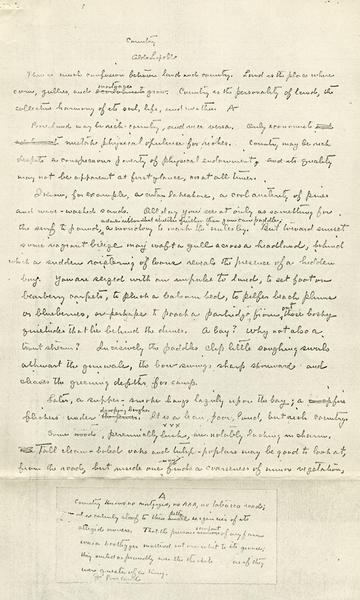 Country
Aldo Leopold
There is much confusion between land and country. Land is the place where
mortgages
corn, gullies, and grow. Country is the personality of land, the
collective harmony of its soil, life, and weather. A
Poor land may be rich country, and vice versa. Only economists
mistake physical opulence for riches. Country may be rich
despite a conspicuous poverty of physical endowment, and its quality
may not be apparent at first glance, nor at all times.
I know, for example, a certain lakeshore, a cool austerity of pines
and wave-washed sands. All day you see it only as something for
the surf to pound, a
ribbon that stretches farther than you can paddle,
monotony to mark the miles by. But toward sunset
some vagrant breeze may waft a gull across a headland, behind
which a sudden roistering of loons reveals the presence of a hidden
bay. You are seized with an impulse to land, to set foot on
bearberry carpets, to pluck a balsam bed, to pilfer beach plums
or blueberries, or perhaps to poach a partridge from those bosky
quietudes that lie behind the dunes. A bay? Why not also a
trout stream? Incisively the paddles clip little soughing swirls
athwart the gunwale, the bow swings sharp shoreward and
cleaves the greening depths for camp.
Later, a supper-smoke hangs lazily upon the bay; a fire
flickers under
drooping boughs.
It is a lean, poor land, but rich country.
xxx
Some woods, perennially lush, are notably lacking in charm.
Tall clean-boled oaks and tulip-poplars may be good to look at,
from the road, but inside one finds a coarseness of minor vegetation,
A
Country knows no mortgages, no AAA, no tobacco roads;
it is calmly aloof to these petty exigencies of its
alleged owners. That the previous occupant of my farm
was a bootlegger mattered not one whit to its grouse;
they sailed as proudly over the thickets as if they
were guests of a king.
Poor land